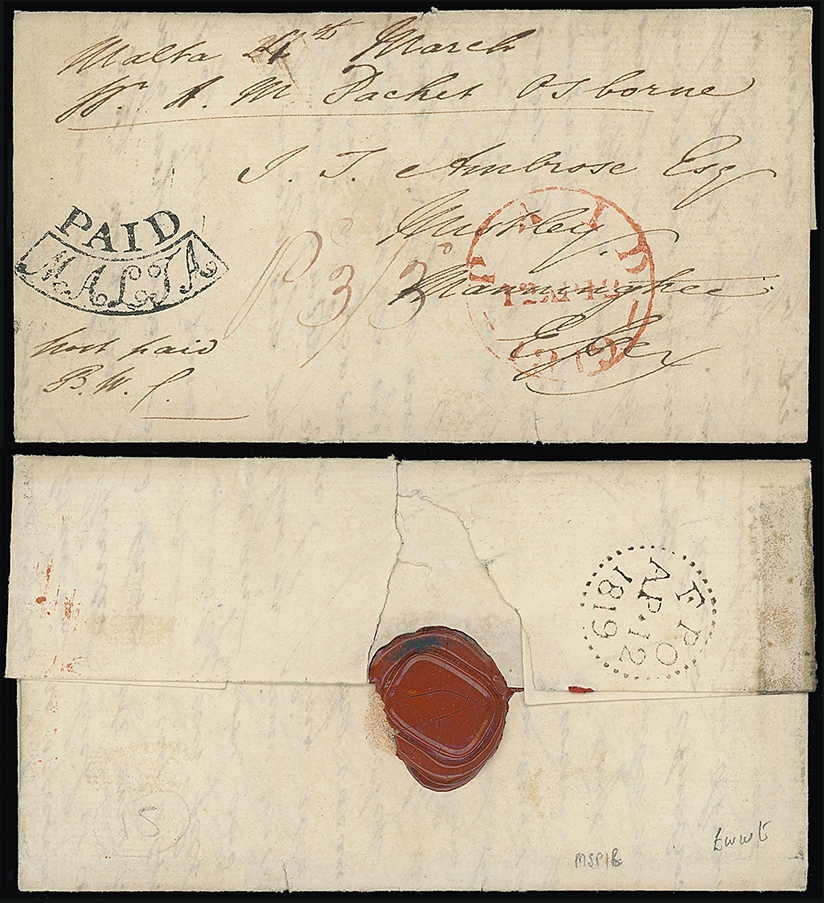 Malta 4th March
Pr. H. M. Packet Osborne
J. J. Ambrose Esq
Mistley
Manningtree
Essex
PAID
MALTA
P 3/3
PAID
1819
post paid
F.P.O
AP.12
1819
15
MSP1B